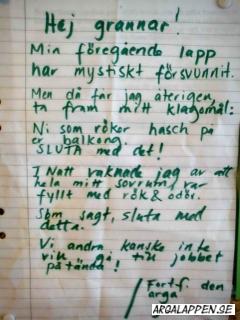 Hej grannar!
Min föregående lapp
har mystiskt försvunnit.
Men då tar jag återigen,
ta fram mitt klagomål:
Ni som röker hasch på
er balkong.
SLUTA med det!
I Natt vaknade jag av att
hela mitt sovrum var
fyllt med rök & odör.
Som sagt, sluta med
detta.
Vi andra kanske inte
vill gå till jobbet
påtända!
/ Fortf. den
arga
ARGALAPPEN.SE